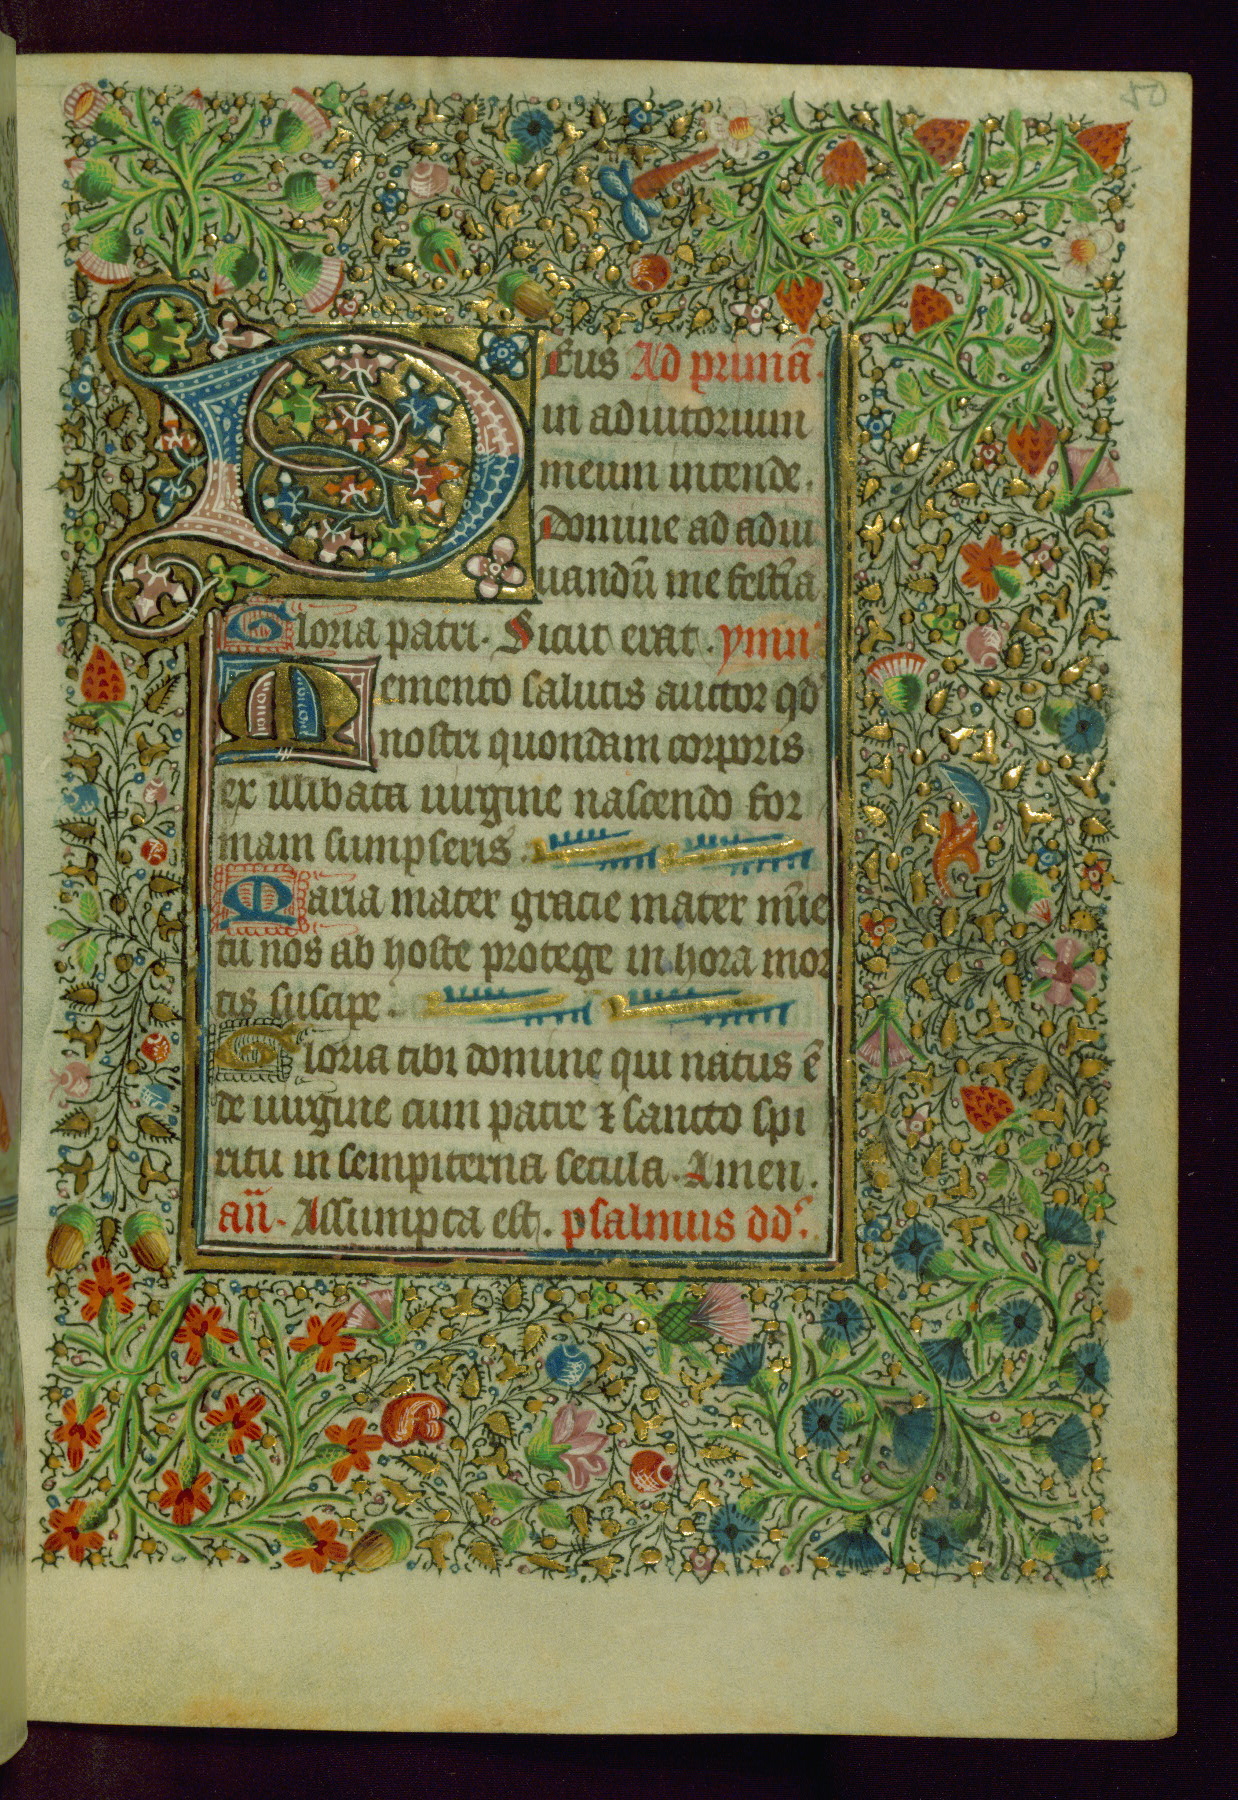 80
Deus Ad primā.
in adiutorium
meum intende.
Domine ad adiu
uandū me festīa
Gloria patri. Sicut erat. ymn᾿
Memento salutis auctor qd᾿
nostri quondam corporis
ex illibata uirgine nascendo for
mam sumpseris.
Maria mater gracie mater mīe
tu nos ab hoste protege in hora mor
tis suscipe.
Gloria tibi domine qui natus ē
de uirgine cum patre ⁊ sancto spi
ritu in sempiterna secula. Amen.
an̄. Assumpta est. psalmus dd᾿.